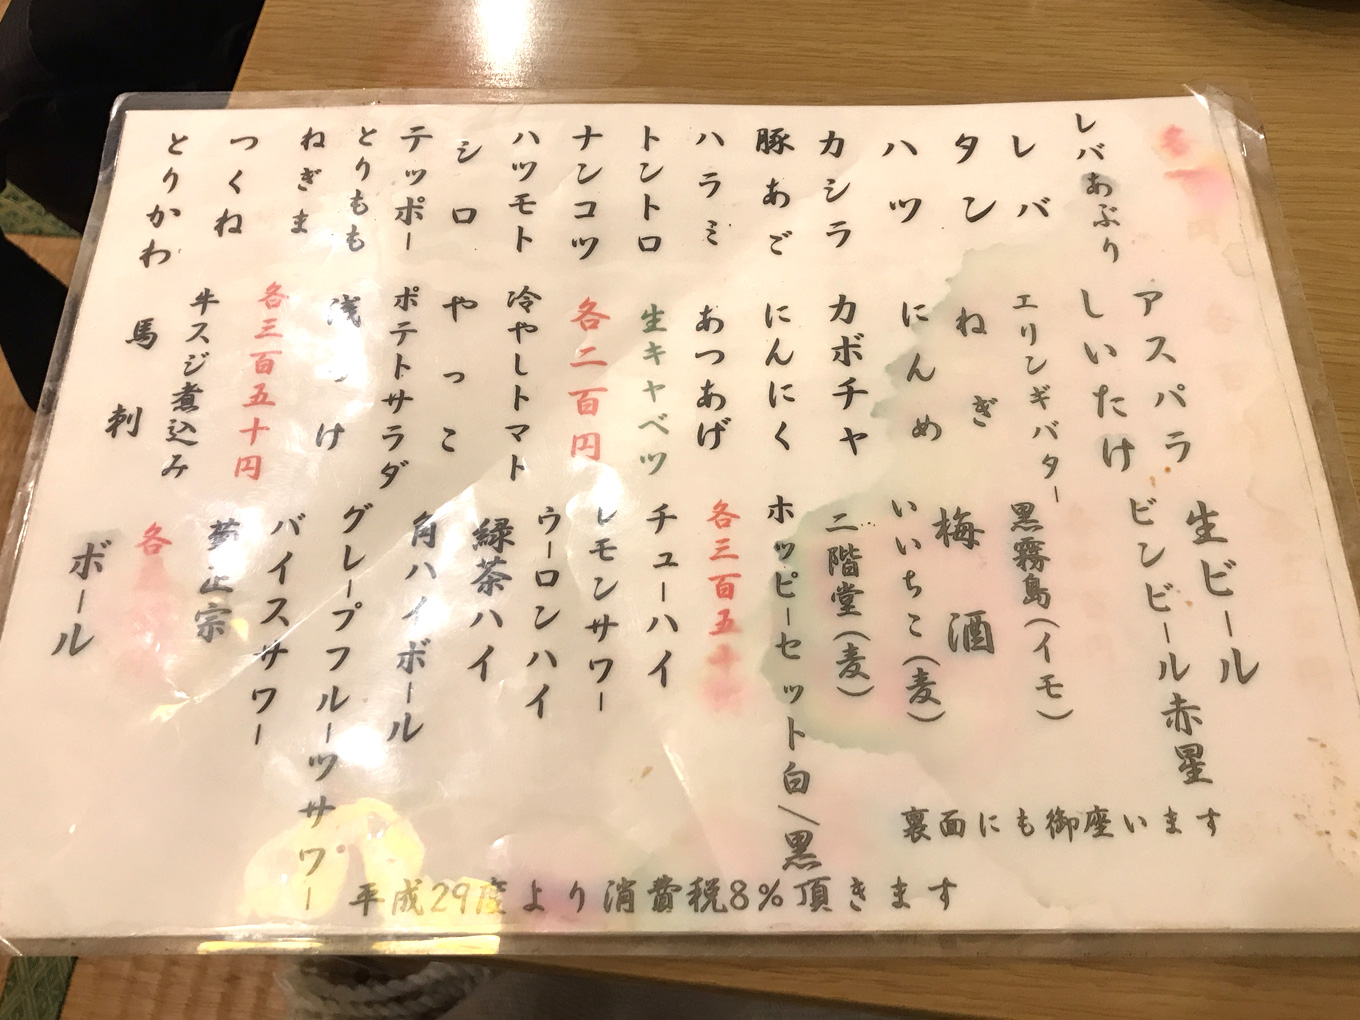 レバあぶり
レバ
タン
ハツ
カシラ
豚あご
ハラミ
トントロ
ナンコツ
ハツモト
シロ
テッポー
とりもも
ねぎま
つくね
とりかわ
アスパラ
しいたけ
エリンギバター
ねぎ
にんめ
カボチャ
にんにく
あつあげ
生キャベツ
各二百円
冷やしトマト
やっこ
ポテトサラダ
浅づけ
各三百五十円
牛スジ煮込み
馬刺
生ビール
ビンビール赤星
黒霧島(イモ)
梅酒
いいちこ(麦)
二階堂(麦)
ホッピーセット白/黒
各三百五十
チューハイ
レモンサワー
ウーロンハイ
緑茶ハイ
角ハイボール
グレープフルーツサワー
バイスサワー
菊正宗
各
ボール
裏面にも御座います
平成29度より消費税8%頂きます